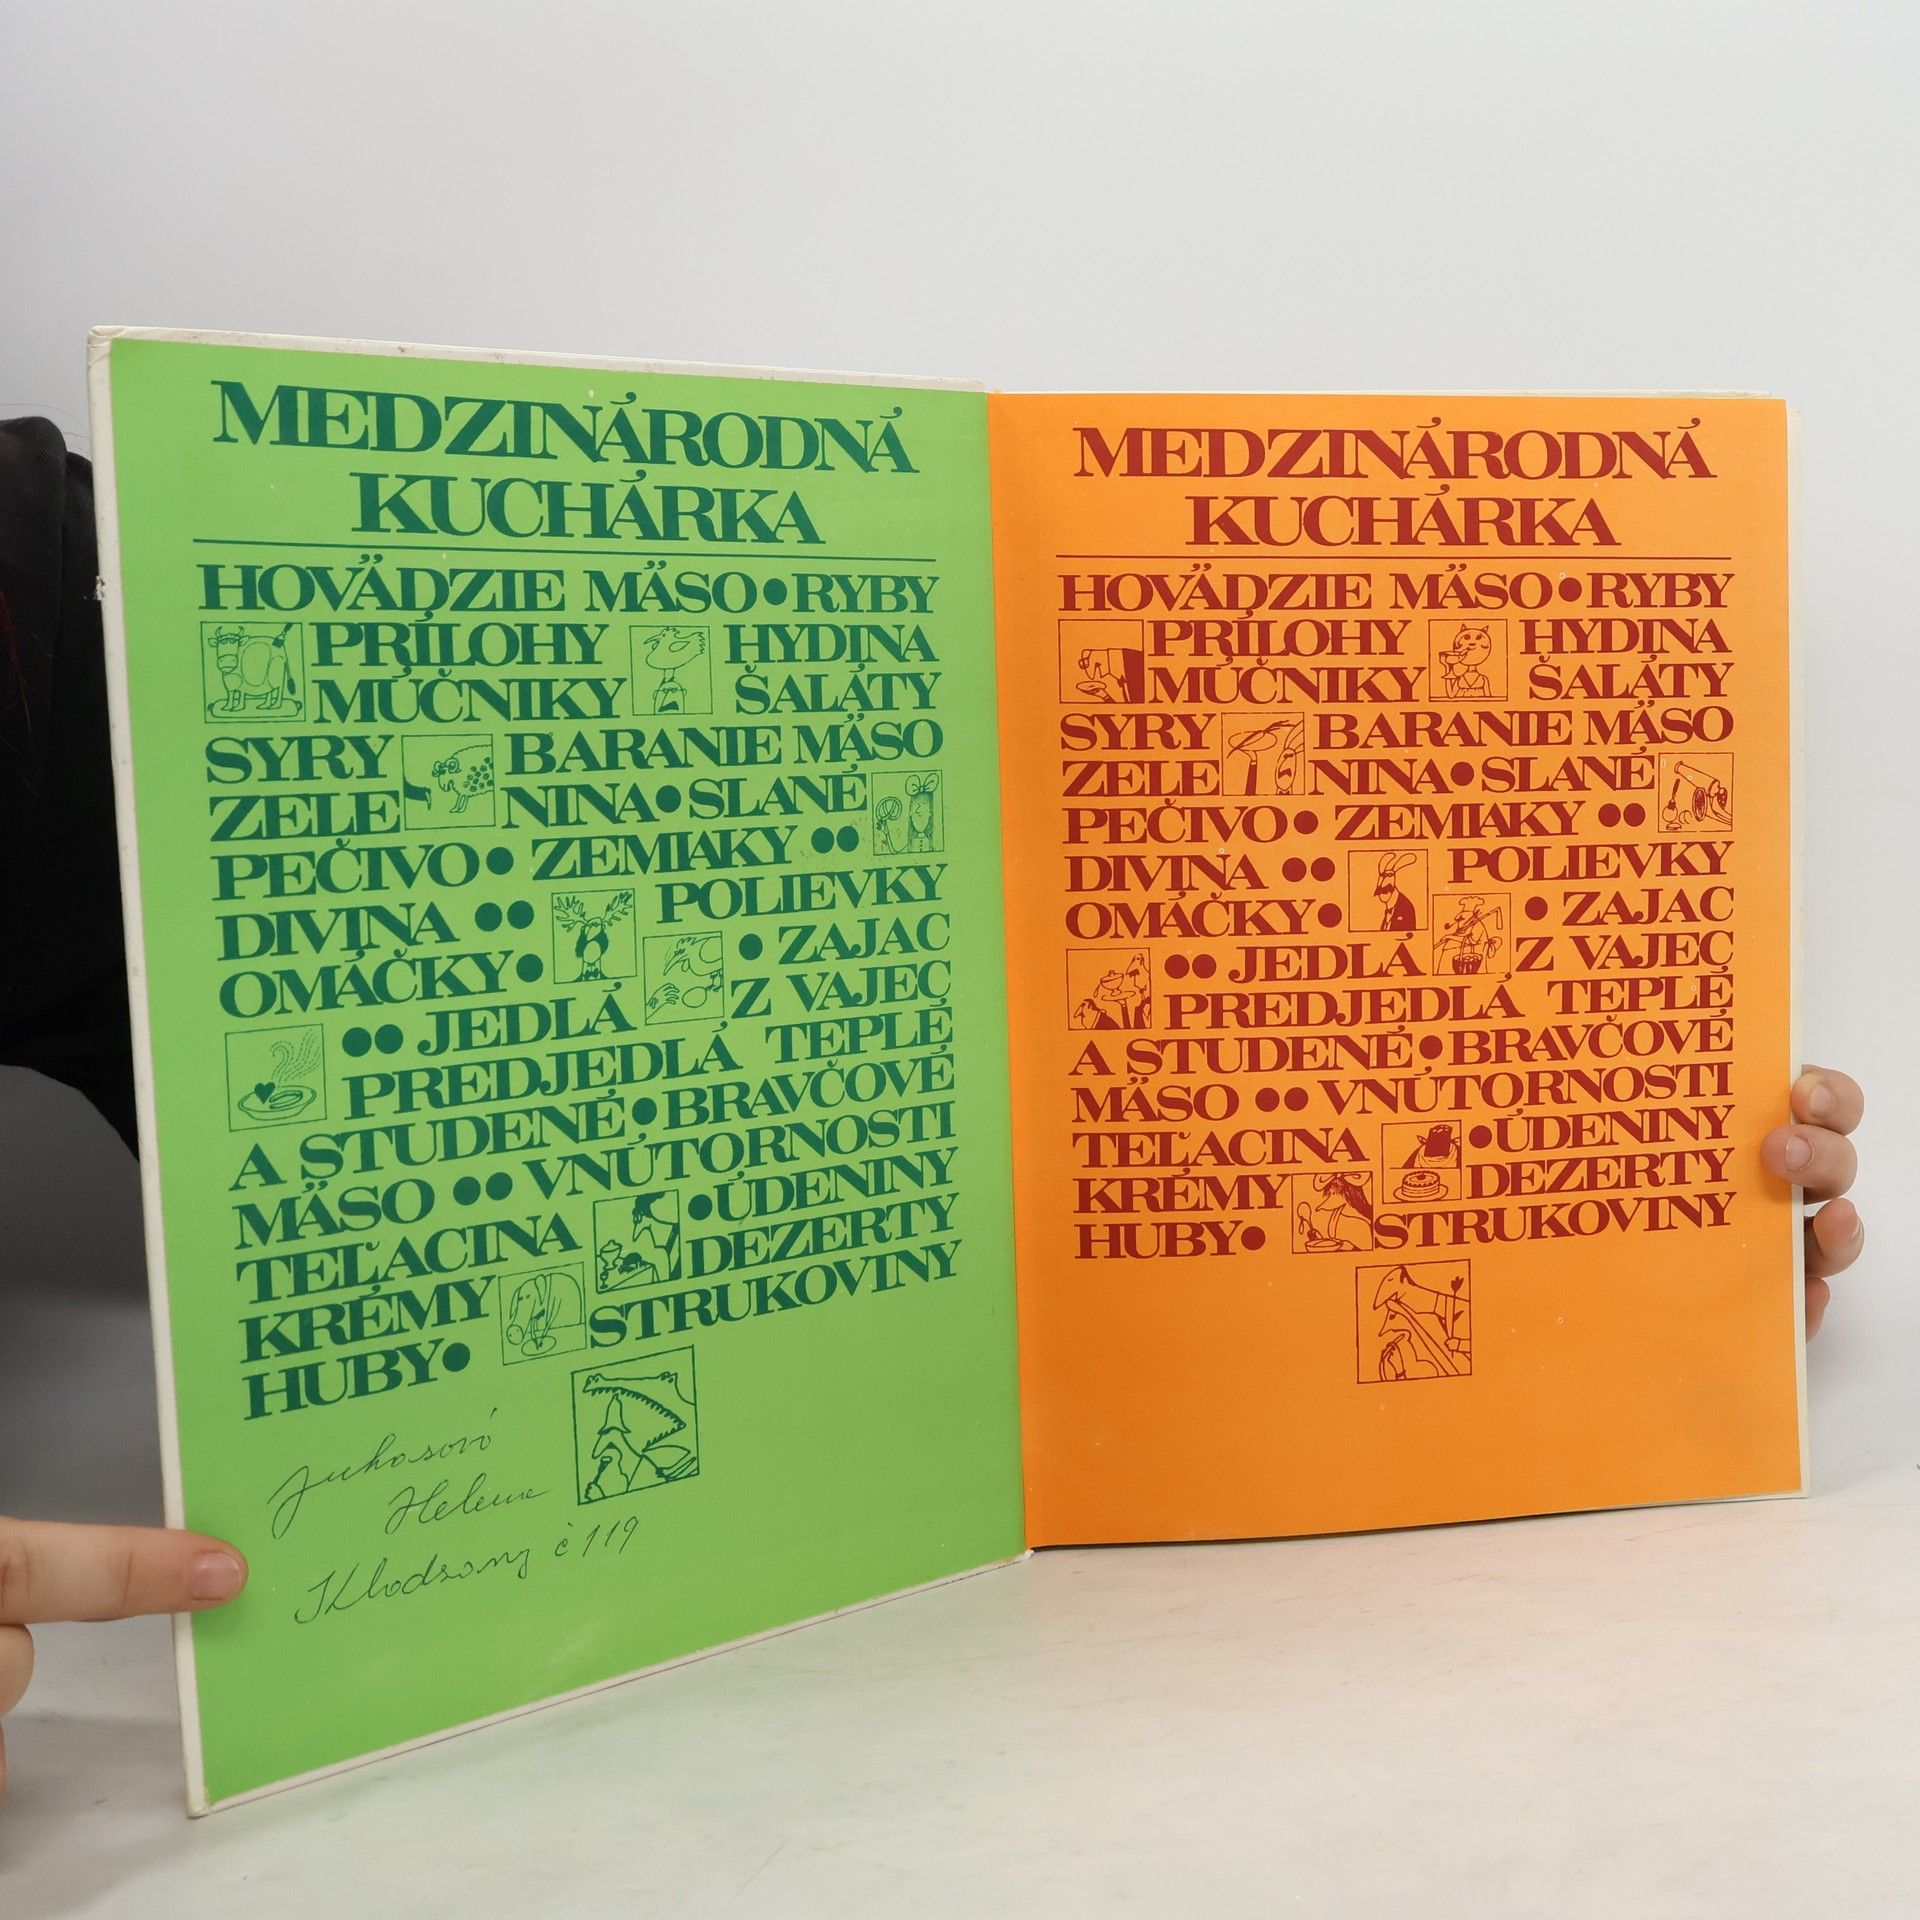 MEDZINÁRODNÁ
KUCHÁRKA
HOVÄDZIE MÄSO • RYBY
PRÍLOHY HYDINA
MÚČNIKY ŠALÁTY
SYRY BARANIE MÄSO
ZELE NINA • SLANÉ
PEČIVO • ZEMIAKY ••
DIVINA •• POLIEVKY
OMÁČKY • • ZAJAC
•• JEDLÁ Z VAJEC
PREDJEDLÁ TEPLÉ
A STUDENÉ • BRAVČOVÉ
MÄSO •• VNÚTORNOSTI
TEĽACINA • ÚDENINY
KRÉMY DEZERTY
HUBY • STRUKOVINY
Juhasová
Helena
č 119
MEDZINÁRODNÁ
KUCHÁRKA
HOVÄDZIE MÄSO • RYBY
PRÍLOHY HYDINA
MÚČNIKY ŠALÁTY
SYRY BARANIE MÄSO
ZELE NINA • SLANÉ
PEČIVO • ZEMIAKY ••
DIVINA •• POLIEVKY
OMÁČKY • • ZAJAC
•• JEDLÁ Z VAJEC
PREDJEDLÁ TEPLÉ
A STUDENÉ • BRAVČOVÉ
MÄSO •• VNÚTORNOSTI
TEĽACINA • ÚDENINY
KRÉMY DEZERTY
HUBY • STRUKOVINY